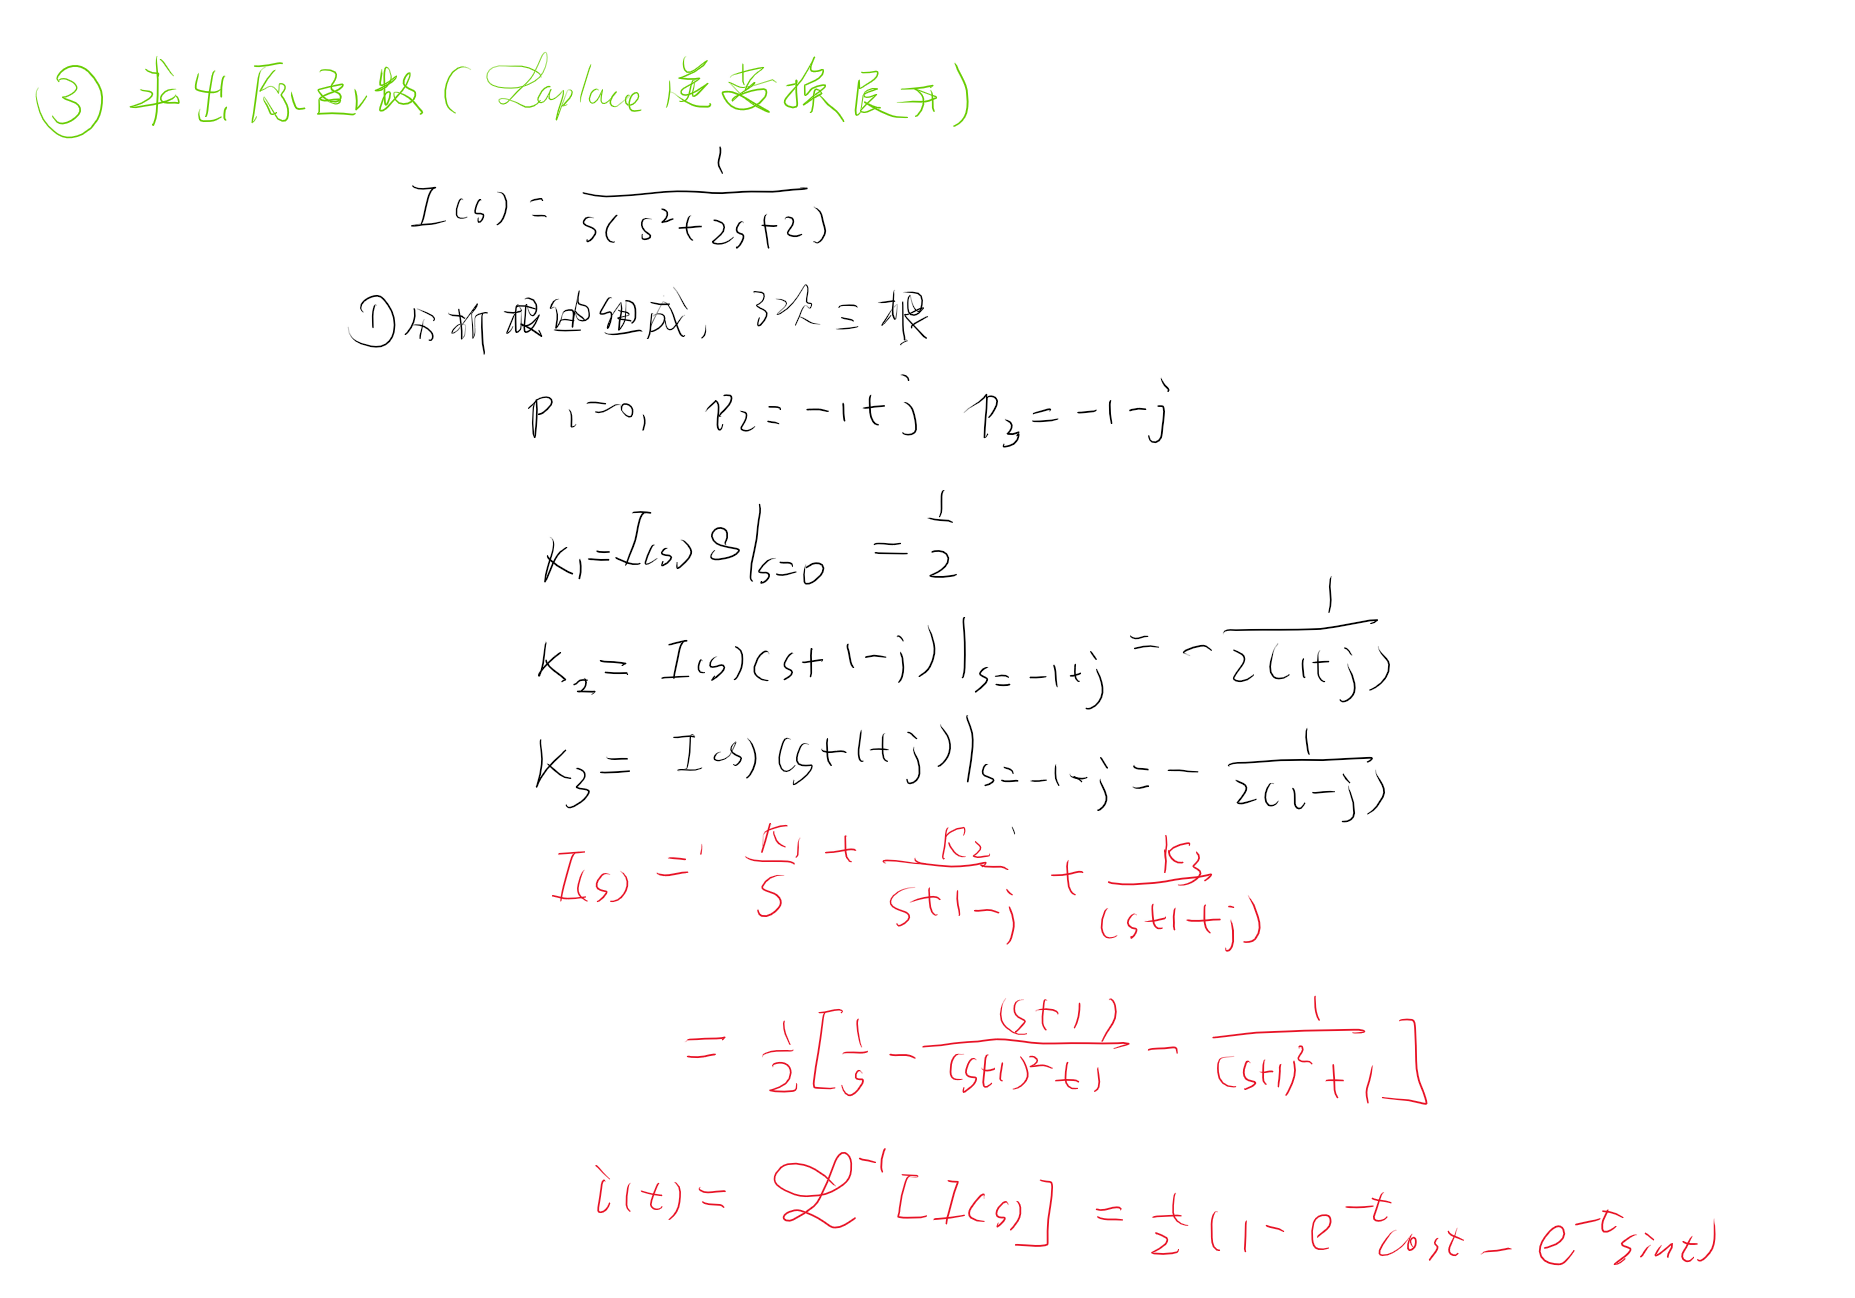 ③ 求出原函数(Laplace 逆变换展开)
I(s) = 1/(s(s²+2s+2))
①分析根的组成, 3次三根
p₁=0, p₂=-1+j p₃=-1-j
K₁=I(s) s|s=0 = 1/2
K₂= I(s)(s+1-j)|s=-1+j = -1/(2(1+j))
K₃= I(s)(s+1+j)|s=-1-j = -1/(2(1-j))
I(s) = K₁/s + K₂/(s+1-j) + K₃/(s+1+j)
= 1/2[1/s - (s+1)/((s+1)²+1) - 1/((s+1)²+1)]
i(t) = ℒ⁻¹[I(s)] = 1/2(1-e^-t cost - e^-t sint)